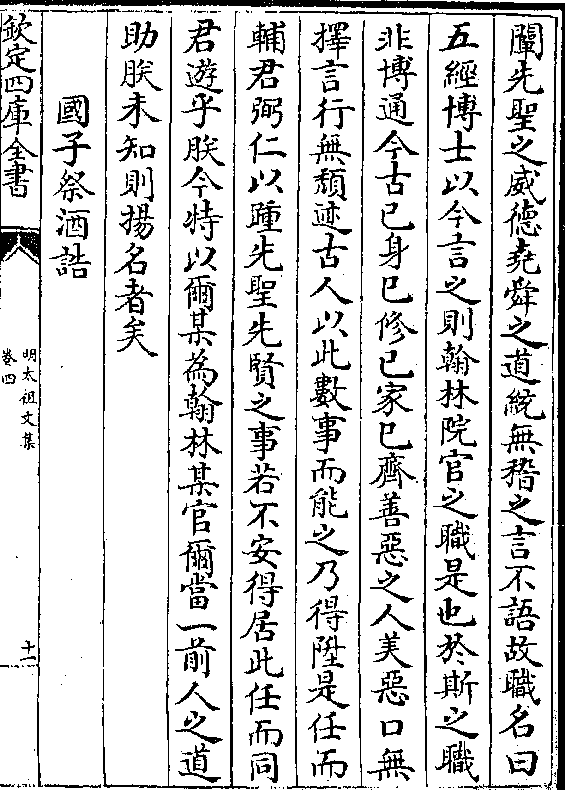 闡先聖之威德堯舜之道統無稽之言不語故職名曰
五經博士以今言之則翰林院官之職是也於斯之職
非博通今古已身已修已家已齊善惡之人美惡口無
擇言行無頹迹古人以此數事而能之乃得陞是任而
輔君弼仁以踵先聖先賢之事若不安得居此任而同
君遊乎朕今特以爾某為翰林某官爾當一前人之道
助朕未知則揚名者矣
國子祭酒誥
欽定四庫全書
明太祖文集
卷四
十一